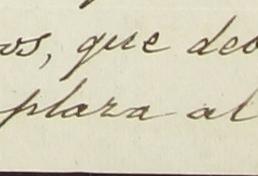 os, que deo
plaza al